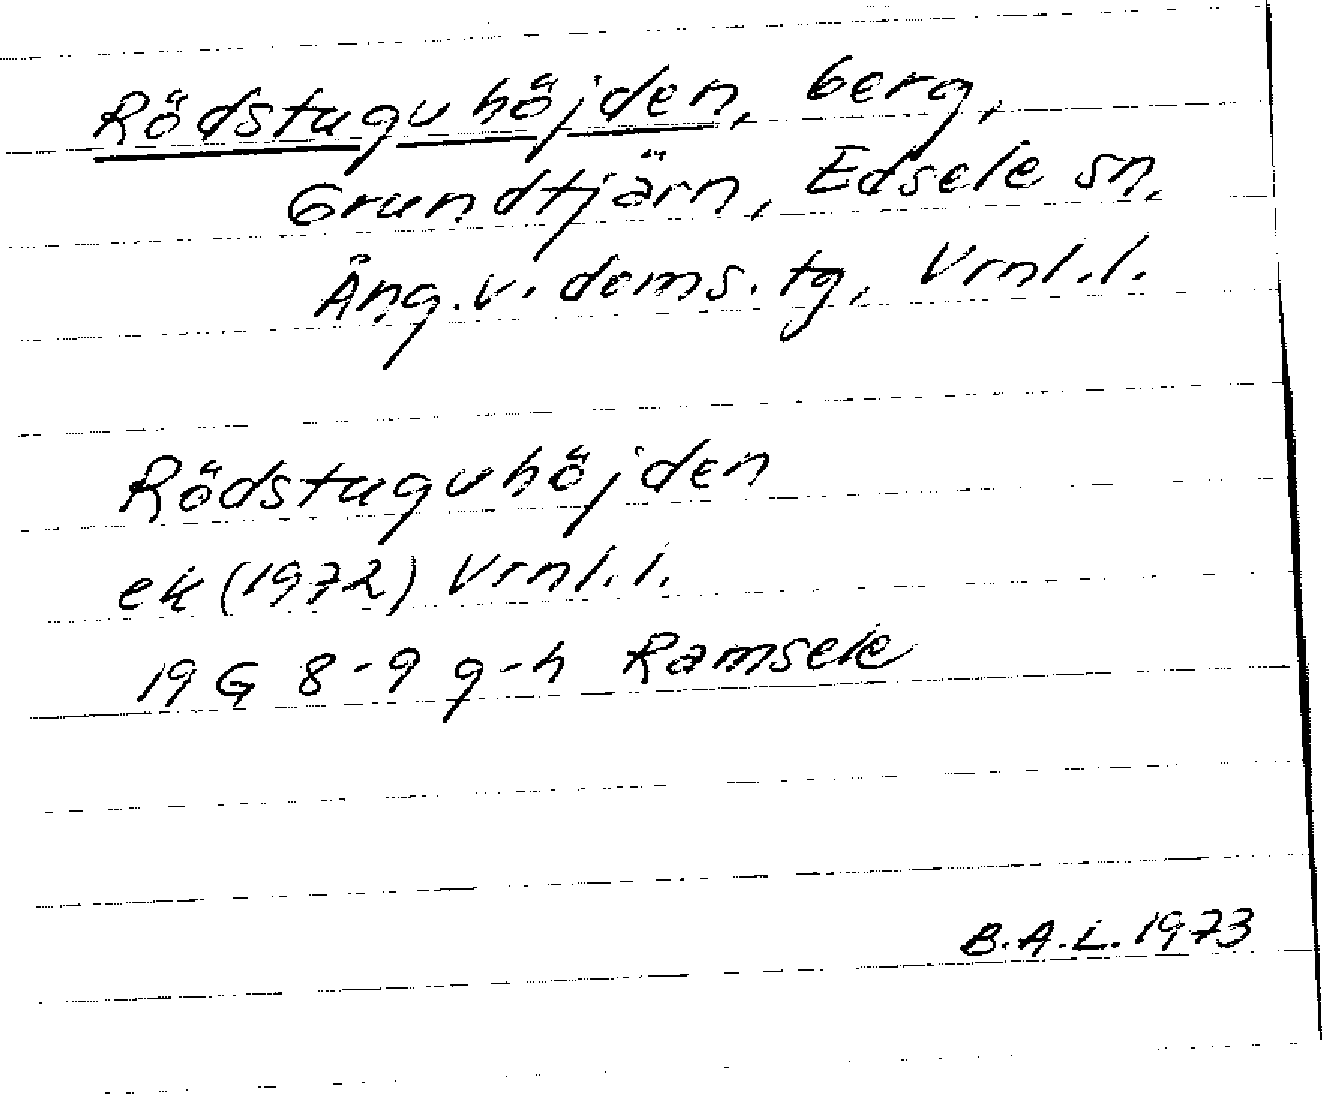 Rödstuguhöjden, berg,
Grundtjärn, Edsele sn,
Ång.v. doms. tg, Vrnl.l.
Rödstuguhöjden
ek (1972) Vrnl.l.
19 G 8-9 g-h Ramsele
B.A.L. 1973